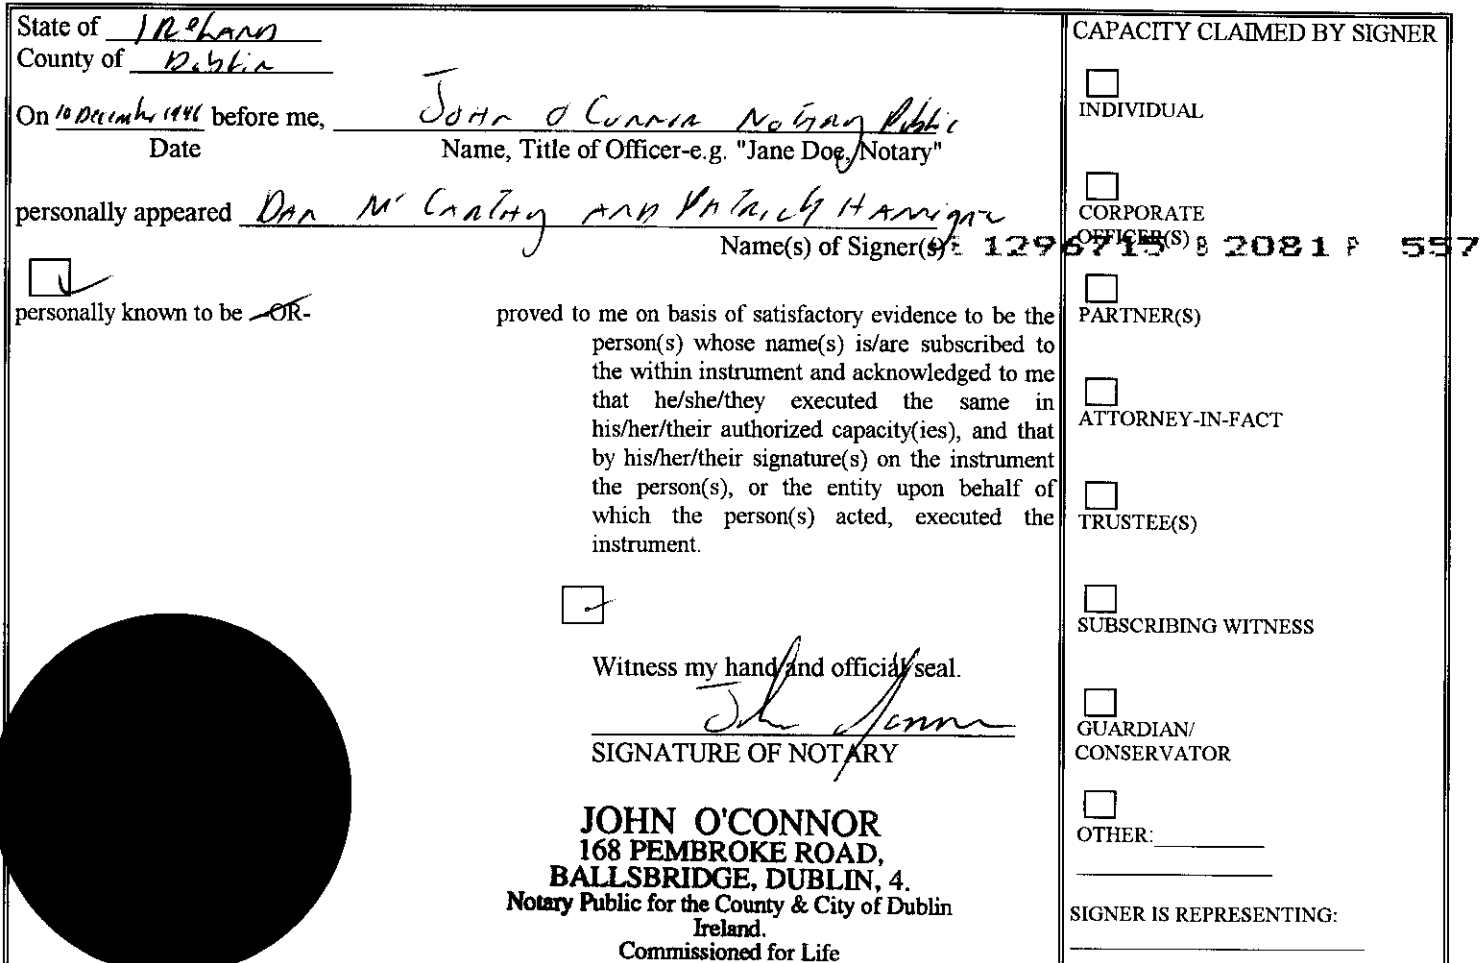 State of Ireland
County of Dublin
On 10 December before me, John O Connor Notary Public
Date
Name, Title of Officer-e.g. "Jane Doe, Notary"
personally appeared Dan Mc Carthy and Patrick Hannigan
Name(s) of Signer(s)
1296715 B 2081 P 557
personally known to be -OR-
proved to me on basis of satisfactory evidence to be the
person(s) whose name(s) is/are subscribed to
the within instrument and acknowledged to me
that he/she/they executed the same in
his/her/their authorized capacity(ies), and that
by his/her/their signature(s) on the instrument
the person(s), or the entity upon behalf of
which the person(s) acted, executed the
instrument.
Witness my hand and official seal.
John O'Connor
SIGNATURE OF NOTARY
JOHN O'CONNOR
168 PEMBROKE ROAD,
BALLSBRIDGE, DUBLIN, 4.
Notary Public for the County & City of Dublin
Ireland.
Commissioned for Life
CAPACITY CLAIMED BY SIGNER
INDIVIDUAL
CORPORATE
OFFICER(S)
PARTNER(S)
ATTORNEY-IN-FACT
TRUSTEE(S)
SUBSCRIBING WITNESS
GUARDIAN/
CONSERVATOR
OTHER:
SIGNER IS REPRESENTING: